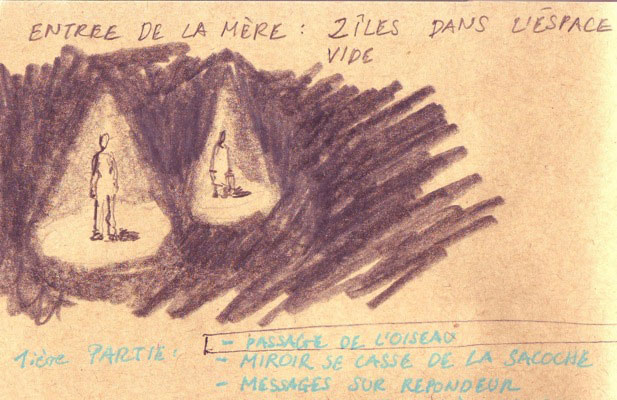 ENTREE DE LA MÈRE : 2 ÎLES DANS L'ÉSPACE
VIDE
1ière PARTIE : - PASSAGE DE L'OISEAU
- MIROIR SE CASSE DE LA SACOCHE
- MESSAGES SUR REPONDEUR